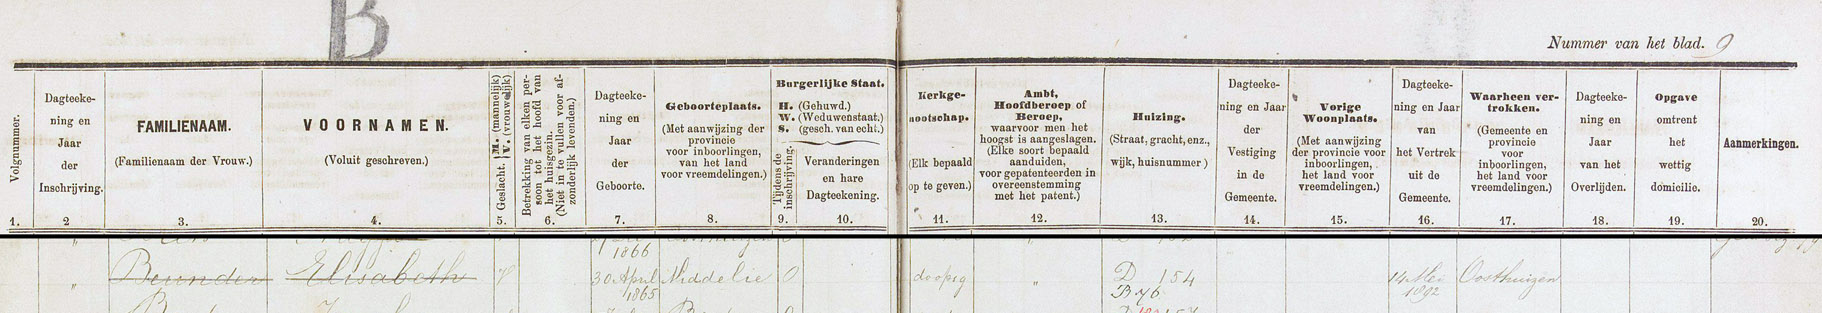 B
Nummer van het blad. 9
Volgnummer.
1.
Dagteeke-
ning en
Jaar
der
Inschrijving.
2
FAMILIENAAM.
(Familienaam der Vrouw.)
3.
VOORNAMEN.
(Voluit geschreven.)
4.
Geslacht M. (mannelijk)
V. (vrouwelijk)
5.
Betrekking van elken per-
soon tot het hoofd van
het huisgezin.
(Niet in te vullen voor af-
zonderlijk levenden.)
6.
Dagteeke-
ning en
Jaar
der
Geboorte.
7.
Geboorteplaats.
(Met aanwijzing der
provincie
voor inboorlingen,
van het land
voor vreemdelingen.)
8.
Burgerlijke Staat.
H. (Gehuwd.)
W. (Weduwenstaat.)
S. (gesch. van echt.)
Tijdens de
inschrijving.
9.
Veranderingen
en hare
Dagteekening.
10.
Kerkge-
nootschap.
(Elk bepaald
op te geven.)
11.
Ambt,
Hoofdberoep of
Beroep,
waarvoor men het
hoogst is aangeslagen.
(Elke soort bepaald
aanduiden,
voor gepatenteerden in
overeenstemming
met het patent.)
12.
Huizing.
(Straat, gracht, enz.,
wijk, huisnummer)
13.
Dagteeke-
ning en Jaar
der
Vestiging
in de
Gemeente.
14.
Vorige
Woonplaats.
(Met aanwijzing
der provincie voor
inboorlingen,
het land voor
vreemdelingen.)
15.
Dagteeke-
ning en Jaar
van
het Vertrek
uit de
Gemeente.
16.
Waarheen ver-
trokken.
(Gemeente en
provincie
voor
inboorlingen,
het land voor
vreemdelingen.)
17.
Dagteeke-
ning en
Jaar
van het
Overlijden.
18.
Opgave
omtrent
het
wettig
domicilie.
19.
Aanmerkingen.
20.
1866
" Beunder Elisabeth V 30 April Middelie O doopsg " D 154 14 Mei Oosthuizen
1865 B 76 1892